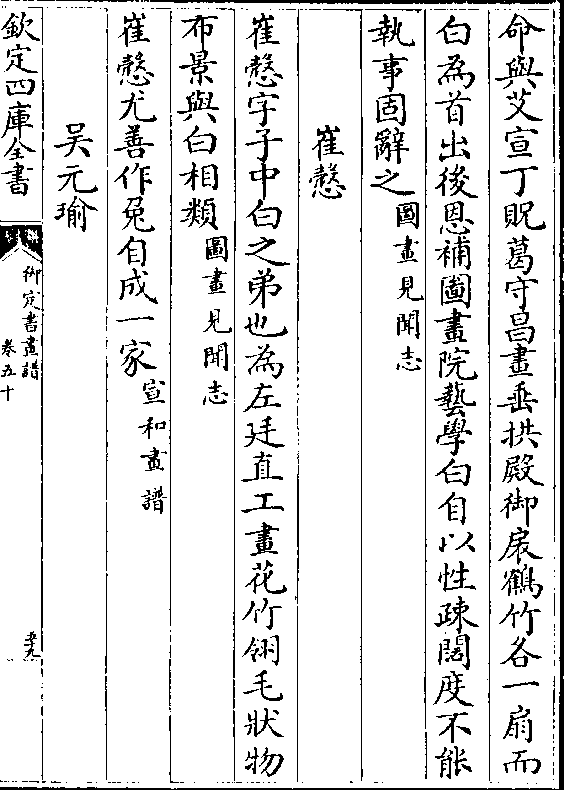 命與艾宣丁貺葛守昌畫垂拱殿御扆鶴竹各一扇而
白為首出後恩補圖畫院藝學白自以性疎闊度不能
執事固辭之圖畫見聞志
崔慤
崔慤字子中白之弟也為左廷直工畫花竹翎毛狀物
布景與白相類圖畫見聞志
崔慤尤善作兔自成一家宣和畫譜
吴元瑜
欽定四庫全書
御定書畫譜
卷五十